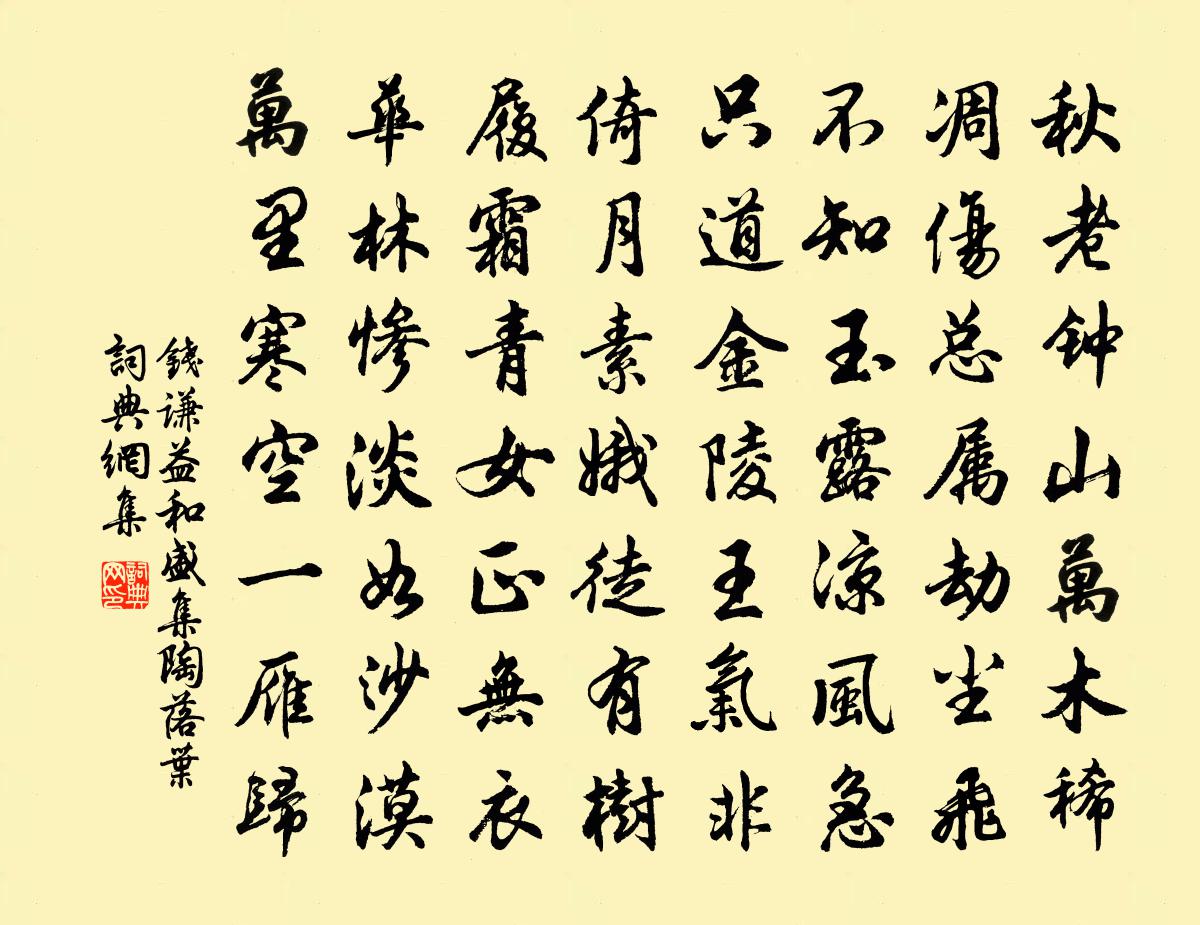 秋老钟山萬木稀
凋傷总属劫尘飛
不知玉露涼風急
只道金陵王氣非
倚月素娥徒有樹
履霜青女正無衣
華林惨淡如沙漠
萬里寒空一雁歸
錢谦益和盛集陶落葉
詞典網集
詞典网印